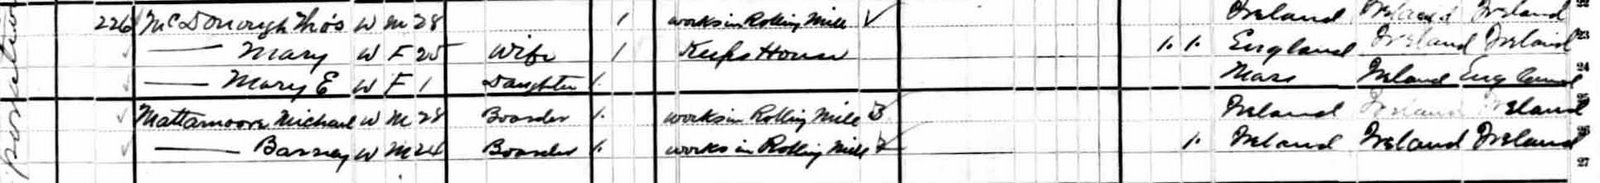 226 McDonough Thos W M 28 1 works in Rolling Mill √ Ireland Ireland Ireland
— Mary W F 25 Wife 1 Keeps House 1. 1. England Ireland Ireland 23
— Mary E W F 1 Daughter 1. Mass Ireland England 24
Mattamoore Michael W M 28 Boarder 1. works in Rolling Mill Ireland Ireland Ireland
— Barney W M 24 Boarder 1. works in Rolling Mill 1. Ireland Ireland Ireland
27